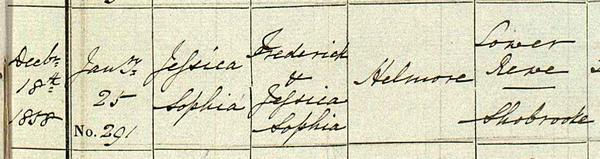 Decbr
18th
1858
Jany
25
No. 291
Jessica
Sophia
Frederick
&
Jessica
Sophia
Helmore
Lower
Rewe
Shobrooke